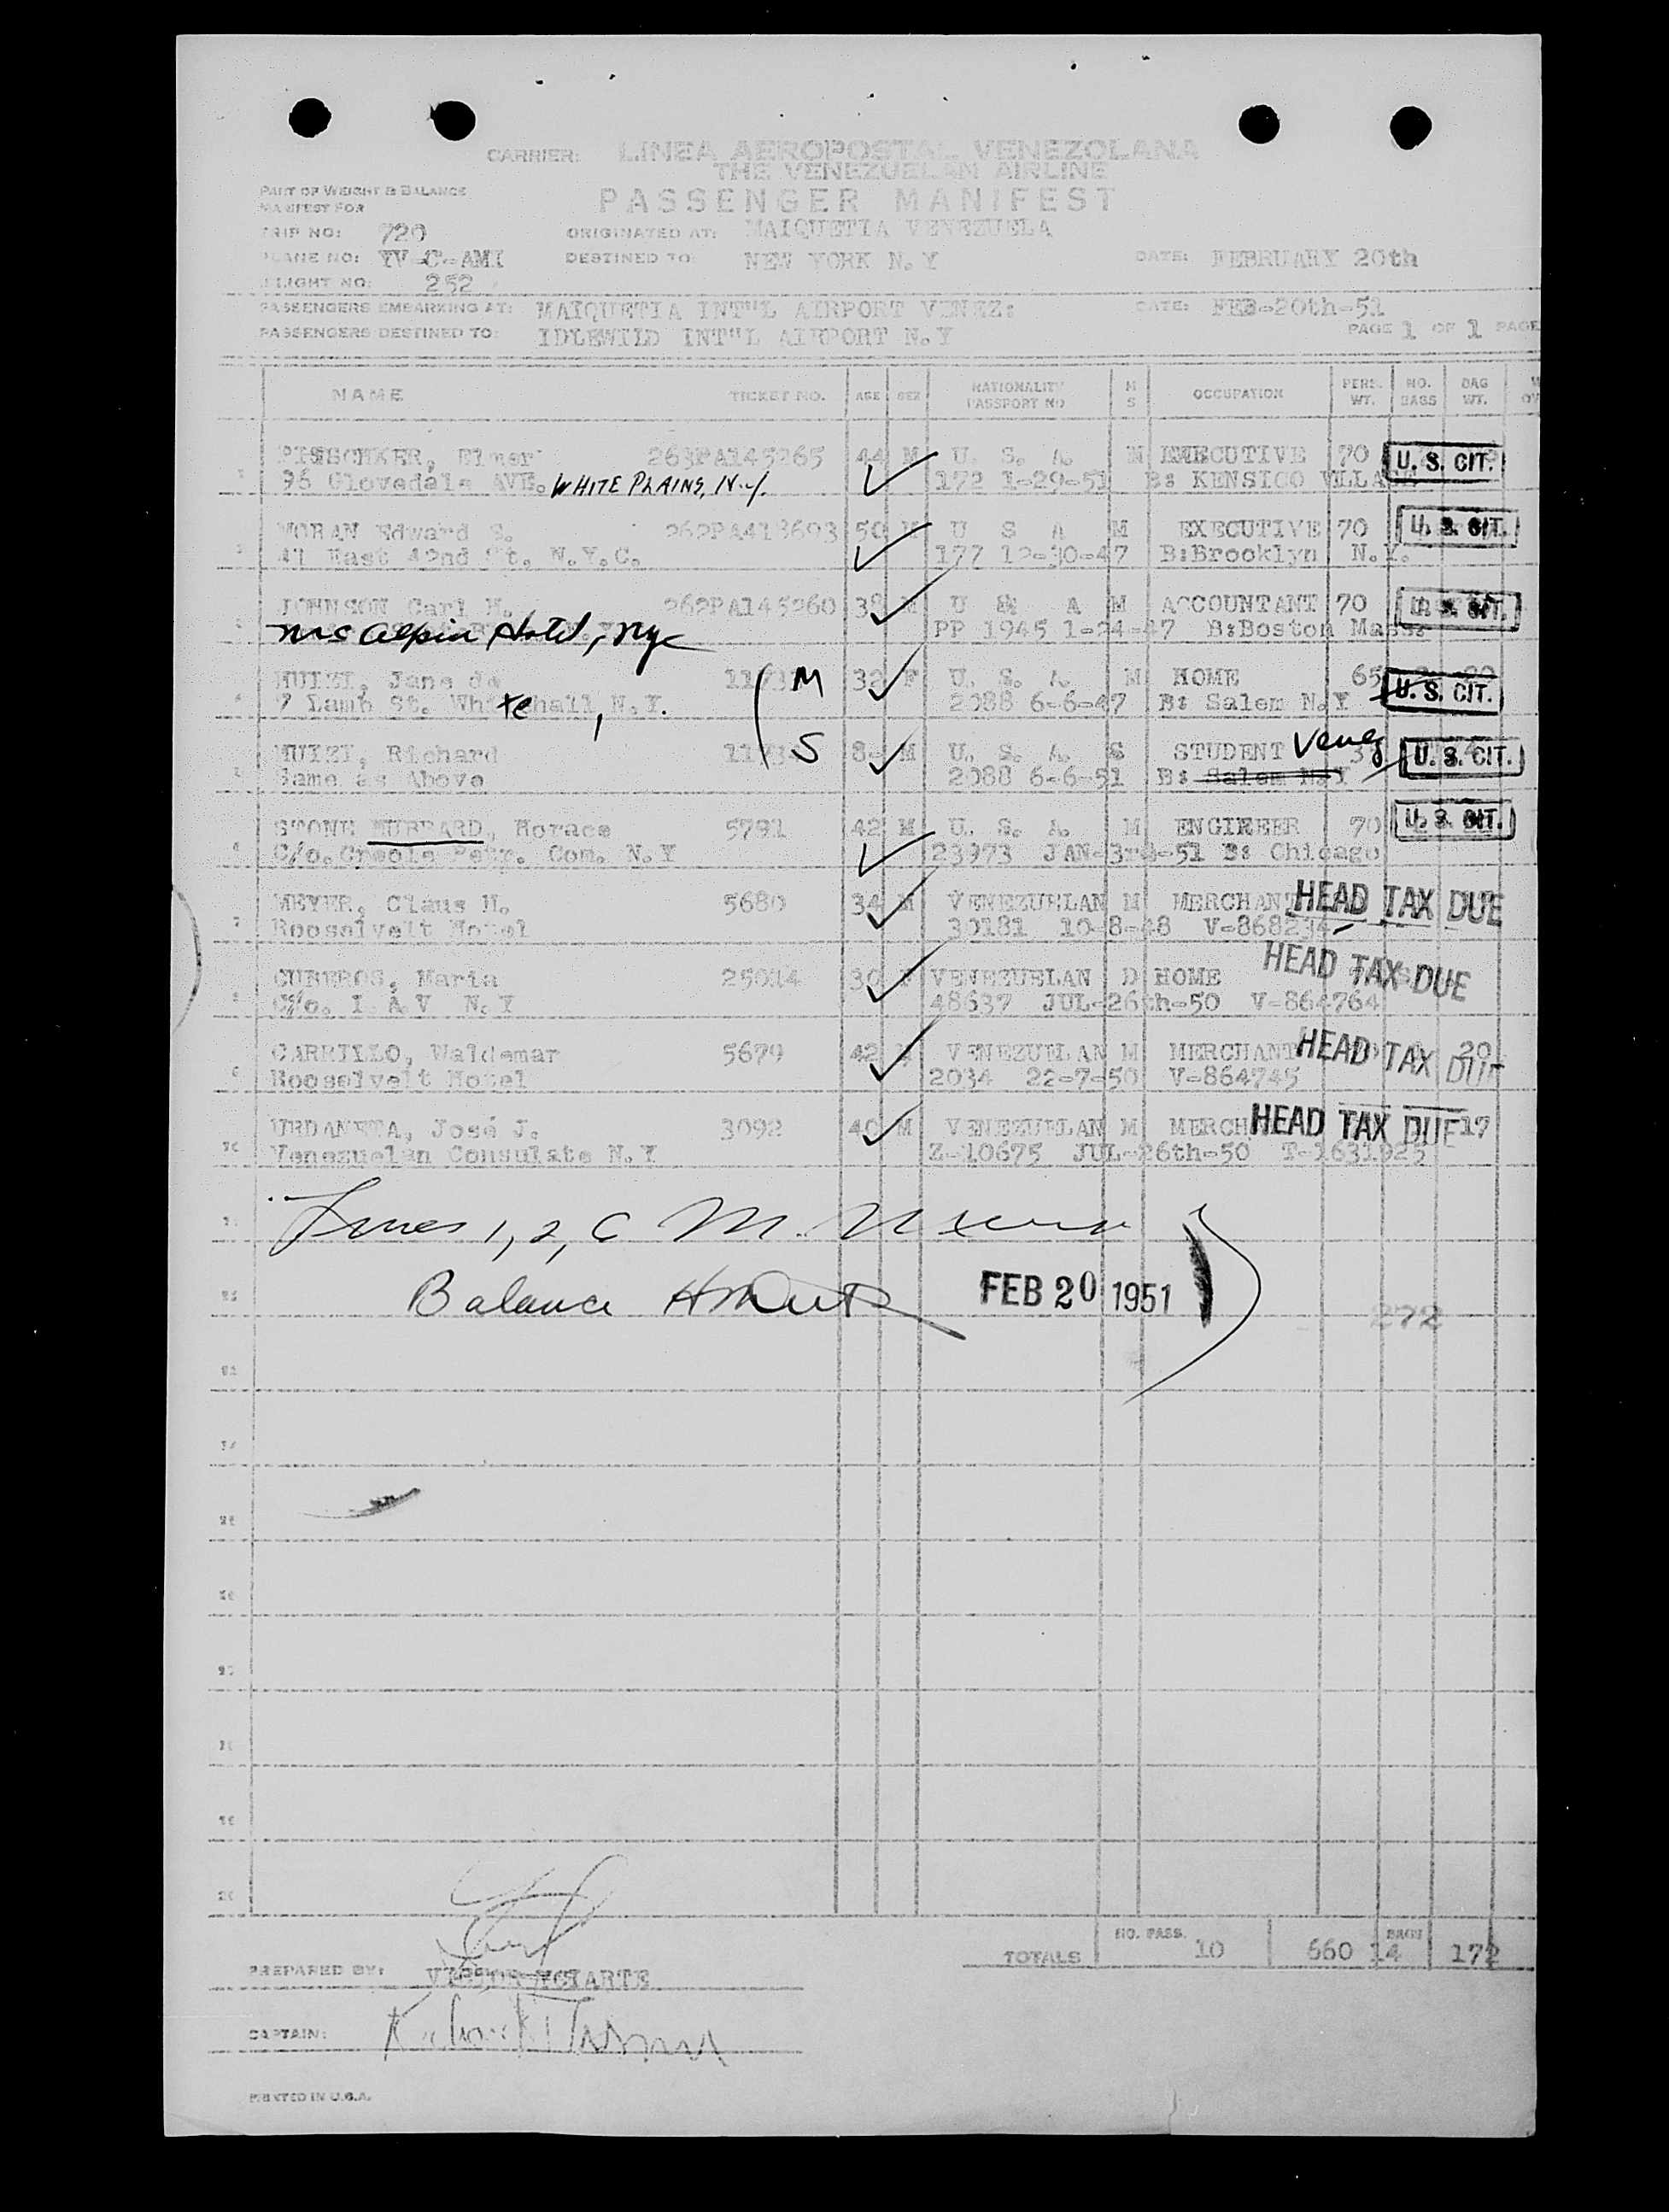 CARRIER: LINEA AEROPOSTAL VENEZOLANA
THE VENEZUELAN AIRLINE
PASSENGER MANIFEST
PART OF WEIGHT & BALANCE
MANIFEST FOR
TRIP NO: 720 ORIGINATED AT: MAIQUETIA VENEZUELA
PLANE NO: YV-C-AMI DESTINED TO: NEW YORK N.Y DATE: FEBRUARY 20th
FLIGHT NO: 252
PASSENGERS EMBARKING AT: MAIQUETIA INT"L AIRPORT VENEZ: DATE: FEB-20th-51
PASSENGERS DESTINED TO: IDLEWILD INT"L AIRPORT N.Y PAGE 1 OF 1 PAGE
NAME TICKET NO. AGE SEX NATIONALITY PASSPORT NO M S OCCUPATION PERS. WT. NO. BAGS BAG WT.
Elmer 263PA145265 44 M U. S. A. M EXECUTIVE 70 U. S. CIT.
96 Clovedale AVE. WHITE PLAINS, N.Y. 172 1-29-51 B: KENSICO VLLAGE
MORAN Edward S. 262PA413693 50 M U S A M EXECUTIVE 70 U. S. CIT.
41 East 42nd St. N.Y.C. 177 12-30-47 B:Brooklyn N.Y.
JOHNSON Carl H. 262PA145260 38 M U S A M ACCOUNTANT 70 U. S. CIT.
McAlpin Hotel, NYC PP 1945 1-24-47 B:Boston Mass:
MUIZI, Jane de M 32 F U. S. A. M HOME 65 U. S. CIT.
7 Lamb St. Whitehall, N.Y. 2088 6-6-47 B: Salem N.Y
MUIZI, Richard S 8 M U. S. A. S STUDENT Venez U. S. CIT.
Same as Above 2088 6-6-51 B: Salem N.Y
STONE HUBBARD, Horace 5791 42 M U. S. A. M ENGINEER 70 U. S. CIT.
C/o. Creole Petr. Com. N.Y 23973 JAN-3rd-51 B: Chicago
MEYER, Claus H. 5680 34 M VENEZUELAN M MERCHANT HEAD TAX DUE
Rooselvelt Hotel 30181 10-8-48 V-868234
CUBEROS, Maria 25014 30 F VENEZUELAN D HOME HEAD TAX DUE
C/o. L A V N.Y 48637 JUL-26th-50 V-864764
CARRILLO, Waldemar 5679 42 M VENEZUELAN M MERCHANT HEAD TAX DUE 20
Rooselvelt Hotel 2034 22-7-50 V-864745
URDANETA, José J. 3092 40 M VENEZUELAN M MERCH HEAD TAX DUE 17
Venezuelan Consulate N.Y Z-10675 JUL-26th-50 T-1631925
Lines 1, 2, 6 M.
Balance FEB 20 1951 272
TOTALS NO. PASS. 10 660 BAGS 14 172
PREPARED BY:
CAPTAIN:
PRINTED IN U.S.A.